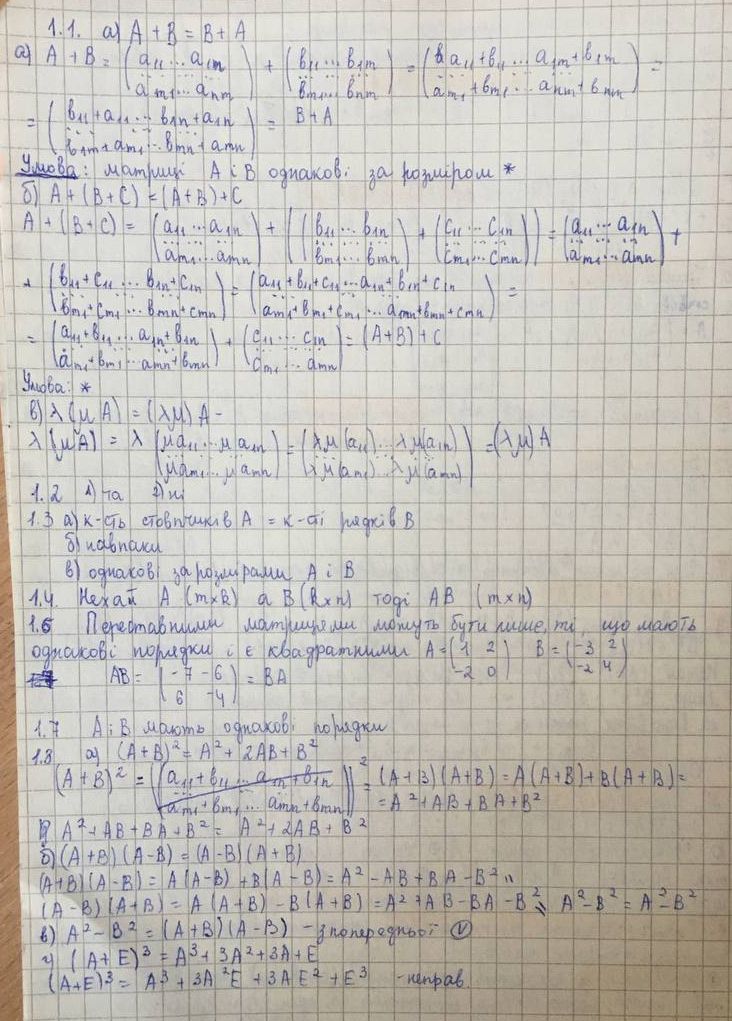 1.1. а) A + B = B + A
а) A + B = (a₁₁ ... a₁n) + (b₁₁ ... b₁m) = (a₁₁+b₁₁ ... a₁m+b₁m) =
(am₁ ... anm) (bm₁ ... bnm) (am₁+bm₁ ... anm+bnm)
= (b₁₁+a₁₁ ... b₁n+a₁n) = B+A
(b₁m+am₁ ... bmn+amn)
Умова: матриці A і B однакові за розміром *
б) A+(B+C)=(A+B)+C
A+(B+C) = (a₁₁ ... a₁n) + ((b₁₁ ... b₁n) + (c₁₁ ... c₁n)) = (a₁₁ ... a₁n) +
(am₁ ... amn) ((bm₁ ... bmn) (cm₁ ... cmn)) (am₁ ... amn)
+ (b₁₁+c₁₁ ... b₁n+c₁n) = (a₁₁+b₁₁+c₁₁ ... a₁n+b₁n+c₁n) =
(bm₁+cm₁ ... bmn+cmn) (am₁+bm₁+cm₁ ... amn+bmn+cmn)
= (a₁₁+b₁₁ ... a₁n+b₁n) + (c₁₁ ... c₁n) = (A+B)+C
(am₁+bm₁ ... amn+bmn) (cm₁ ... amn)
Умова: *
в) λ(μA) = (λμ)A -
λ(μA) = λ (μa₁₁ ... μa₁n) = (λμ(a₁₁) ... λμ(a₁n)) = (λμ)A
(μam₁ ... μamn) (λμ(am₁) ... λμ(amn))
1.2 1) та 2) ні
1.3 а) к-сть стовпчиків A = к-сті рядків B
б) навпаки
в) однакові за розмірами A і B
1.4. Нехай A (m×k) а B (k×n) тоді AB (m×n)
1.6 Переставними матрицями можуть бути лише, ті, що мають
однакові порядки і є квадратними A = (1 2) B = (-3 2)
(-2 0) (-2 4)
AB = (-7 -6) = BA
(6 -4)
1.7 A і B мають однакові порядки
1.8 а) (A+B)² = A² + 2AB + B²
(A+B)² = (a₁₁+b₁₁ ... a₁n+b₁n)² = (A+B)(A+B) = A(A+B)+B(A+B) =
(am₁+bm₁ ... amn+bmn) = A²+AB+BA+B²
A²+AB+BA+B² = A²+2AB+B²
б) (A+B)(A-B) = (A-B)(A+B)
(A+B)(A-B) = A(A-B)+B(A-B) = A²-AB+BA-B²
(A-B)(A+B) = A(A+B)-B(A+B) = A²+AB-BA-B² A²-B² = A²-B²
в) A²-B² = (A+B)(A-B) - з попередньої V
г) (A+E)³ = A³+3A²+3A+E
(A+E)³ = A³+3A²E+3AE²+E³ - неправ.